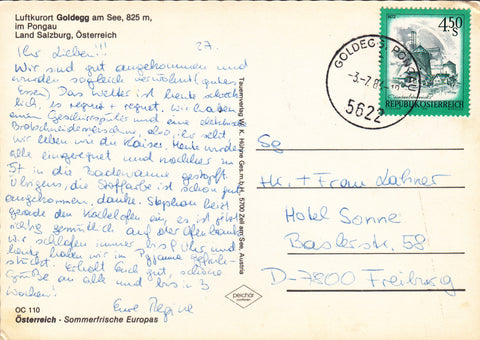 Luftkurort Goldegg am See, 825 m,
im Pongau
Land Salzburg, Österreich
27.
Ihr Lieben!!!
Wir sind gut angekommen und
wurden sogleich verwöhnt (gutes
Essen). Das Wetter ist heute schreck-
lich, es regnet + regnet. Wir haben
einen Geschirrspüler und eine elektrische
Brotschneidemaschine, also, ihr seht
wir leben wie die Kaiser. Heute wurde
alle eingeregnet und nachher zu
5t in die Badewanne gestopft.
Übrigens, die Stoffarbe ist schon gut
angekommen, danke. Stephan heizt
gerade den Kachelofen ein, es ist jetzt
richtig gemütlich auf der Ofenbank.
Wir schlafen immer bis 9 Uhr und
heute haben wir im Pyjama gefrüh-
stückt. Erholt Euch gut, schöne
Grüße an alle und bis in 3
Wochen!
Eure Regine
OC 110
Österreich - Sommerfrische Europas
Tauernverlag W. K. Hühne Ges.m.b.H., 5700 Zell am See, Austria
GOLDEGG, PONGAU
-3.-7.8
5622
4.50
S
REPUBLIK ÖSTERREICH
Sg
Hr. + Frau Lahner
Hotel Sonne
Baslerstr. 58
D-7800 Freiburg